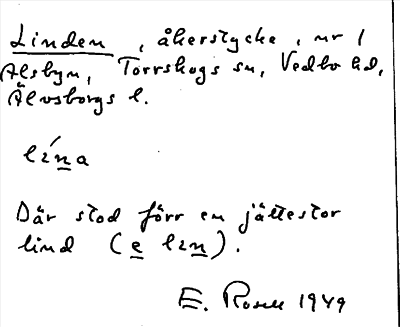 Linden, åkerstycke, nr 1
Alsbyn, Torrskogs sn, Vedbo hd,
Älvsborgs l.
lína
Där stod förr en jättestor
lind (e lin).
E. Rosell 1949